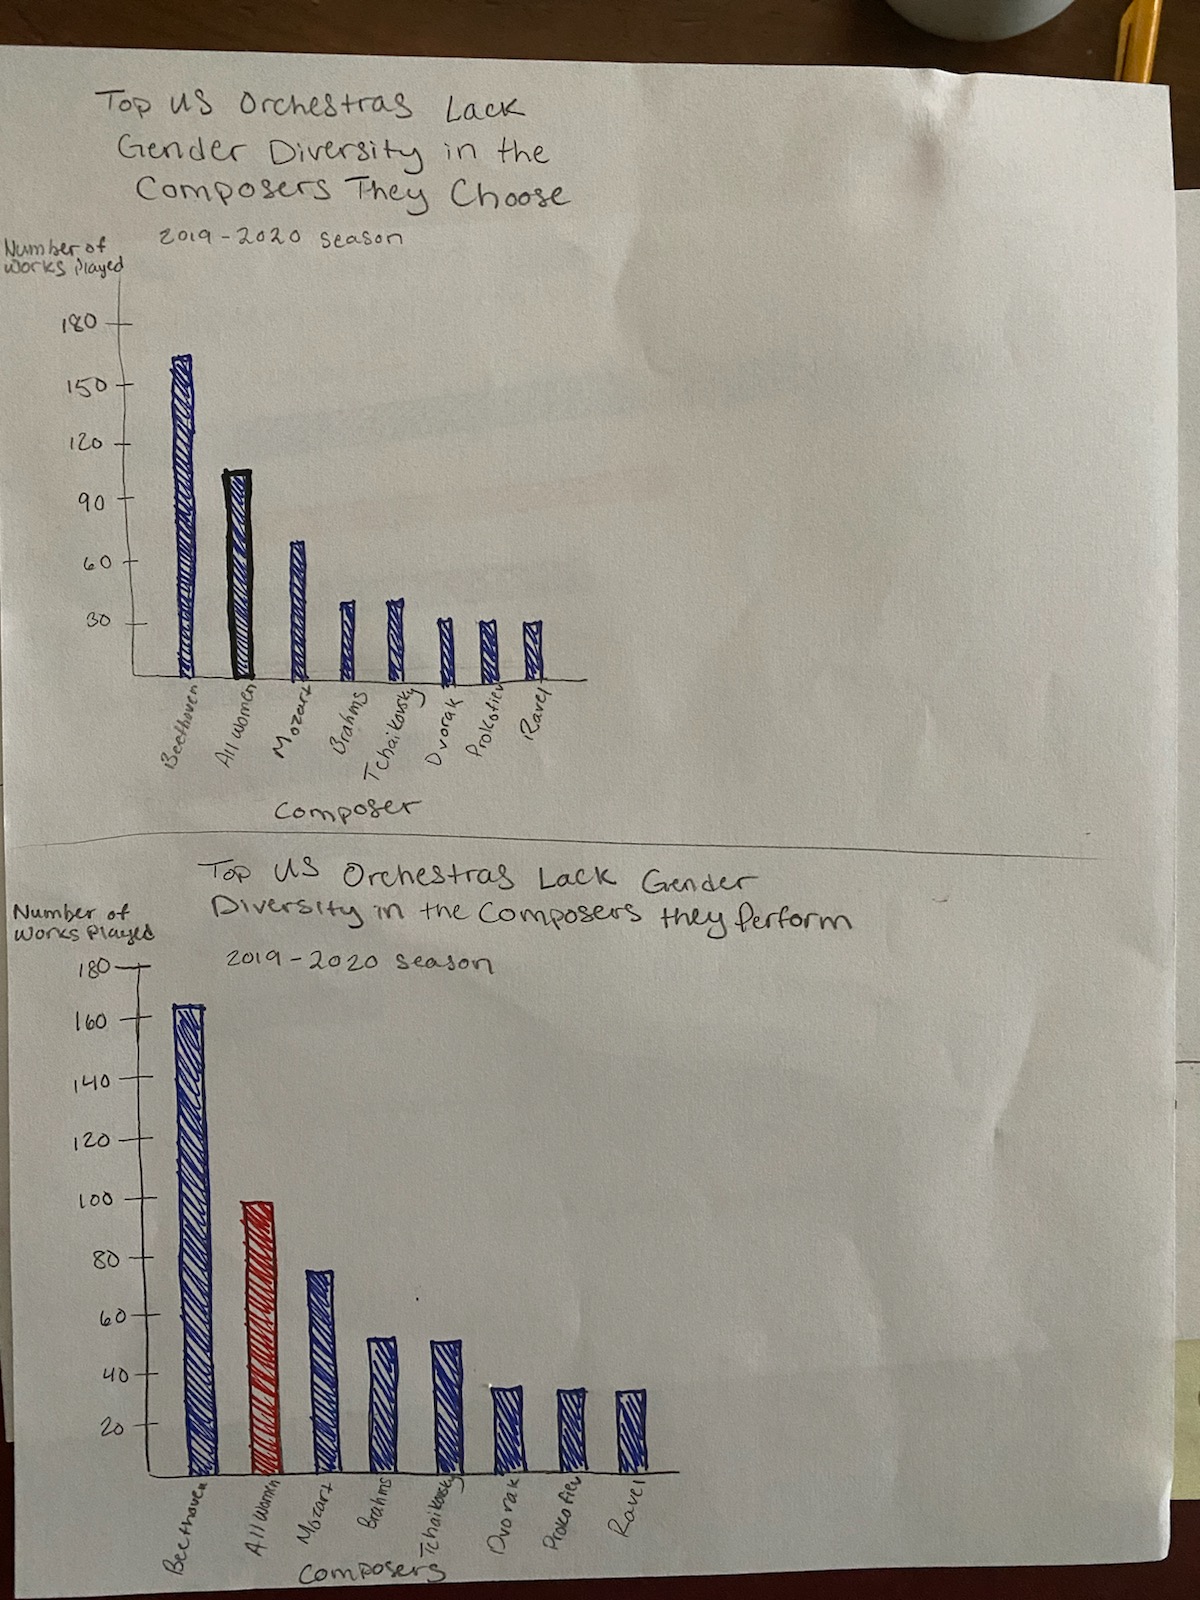 Top US Orchestras Lack
Gender Diversity in the
Composers They Choose
2019-2020 season
Number of
Works Played
180
150
120
90
60
30
Beethoven
All women
Mozart
Brahms
Tchaikovsky
Dvorak
Prokofiev
Ravel
Composer
Top US Orchestras Lack Gender
Diversity in the Composers they Perform
2019-2020 season
Number of
Works Played
180
160
140
120
100
80
60
40
20
Beethoven
All women
Mozart
Brahms
Tchaikovsky
Dvorak
Prokofiev
Ravel
Composers